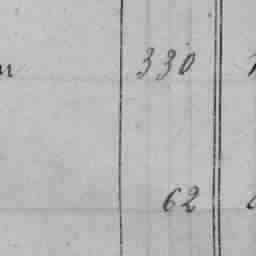 330
62